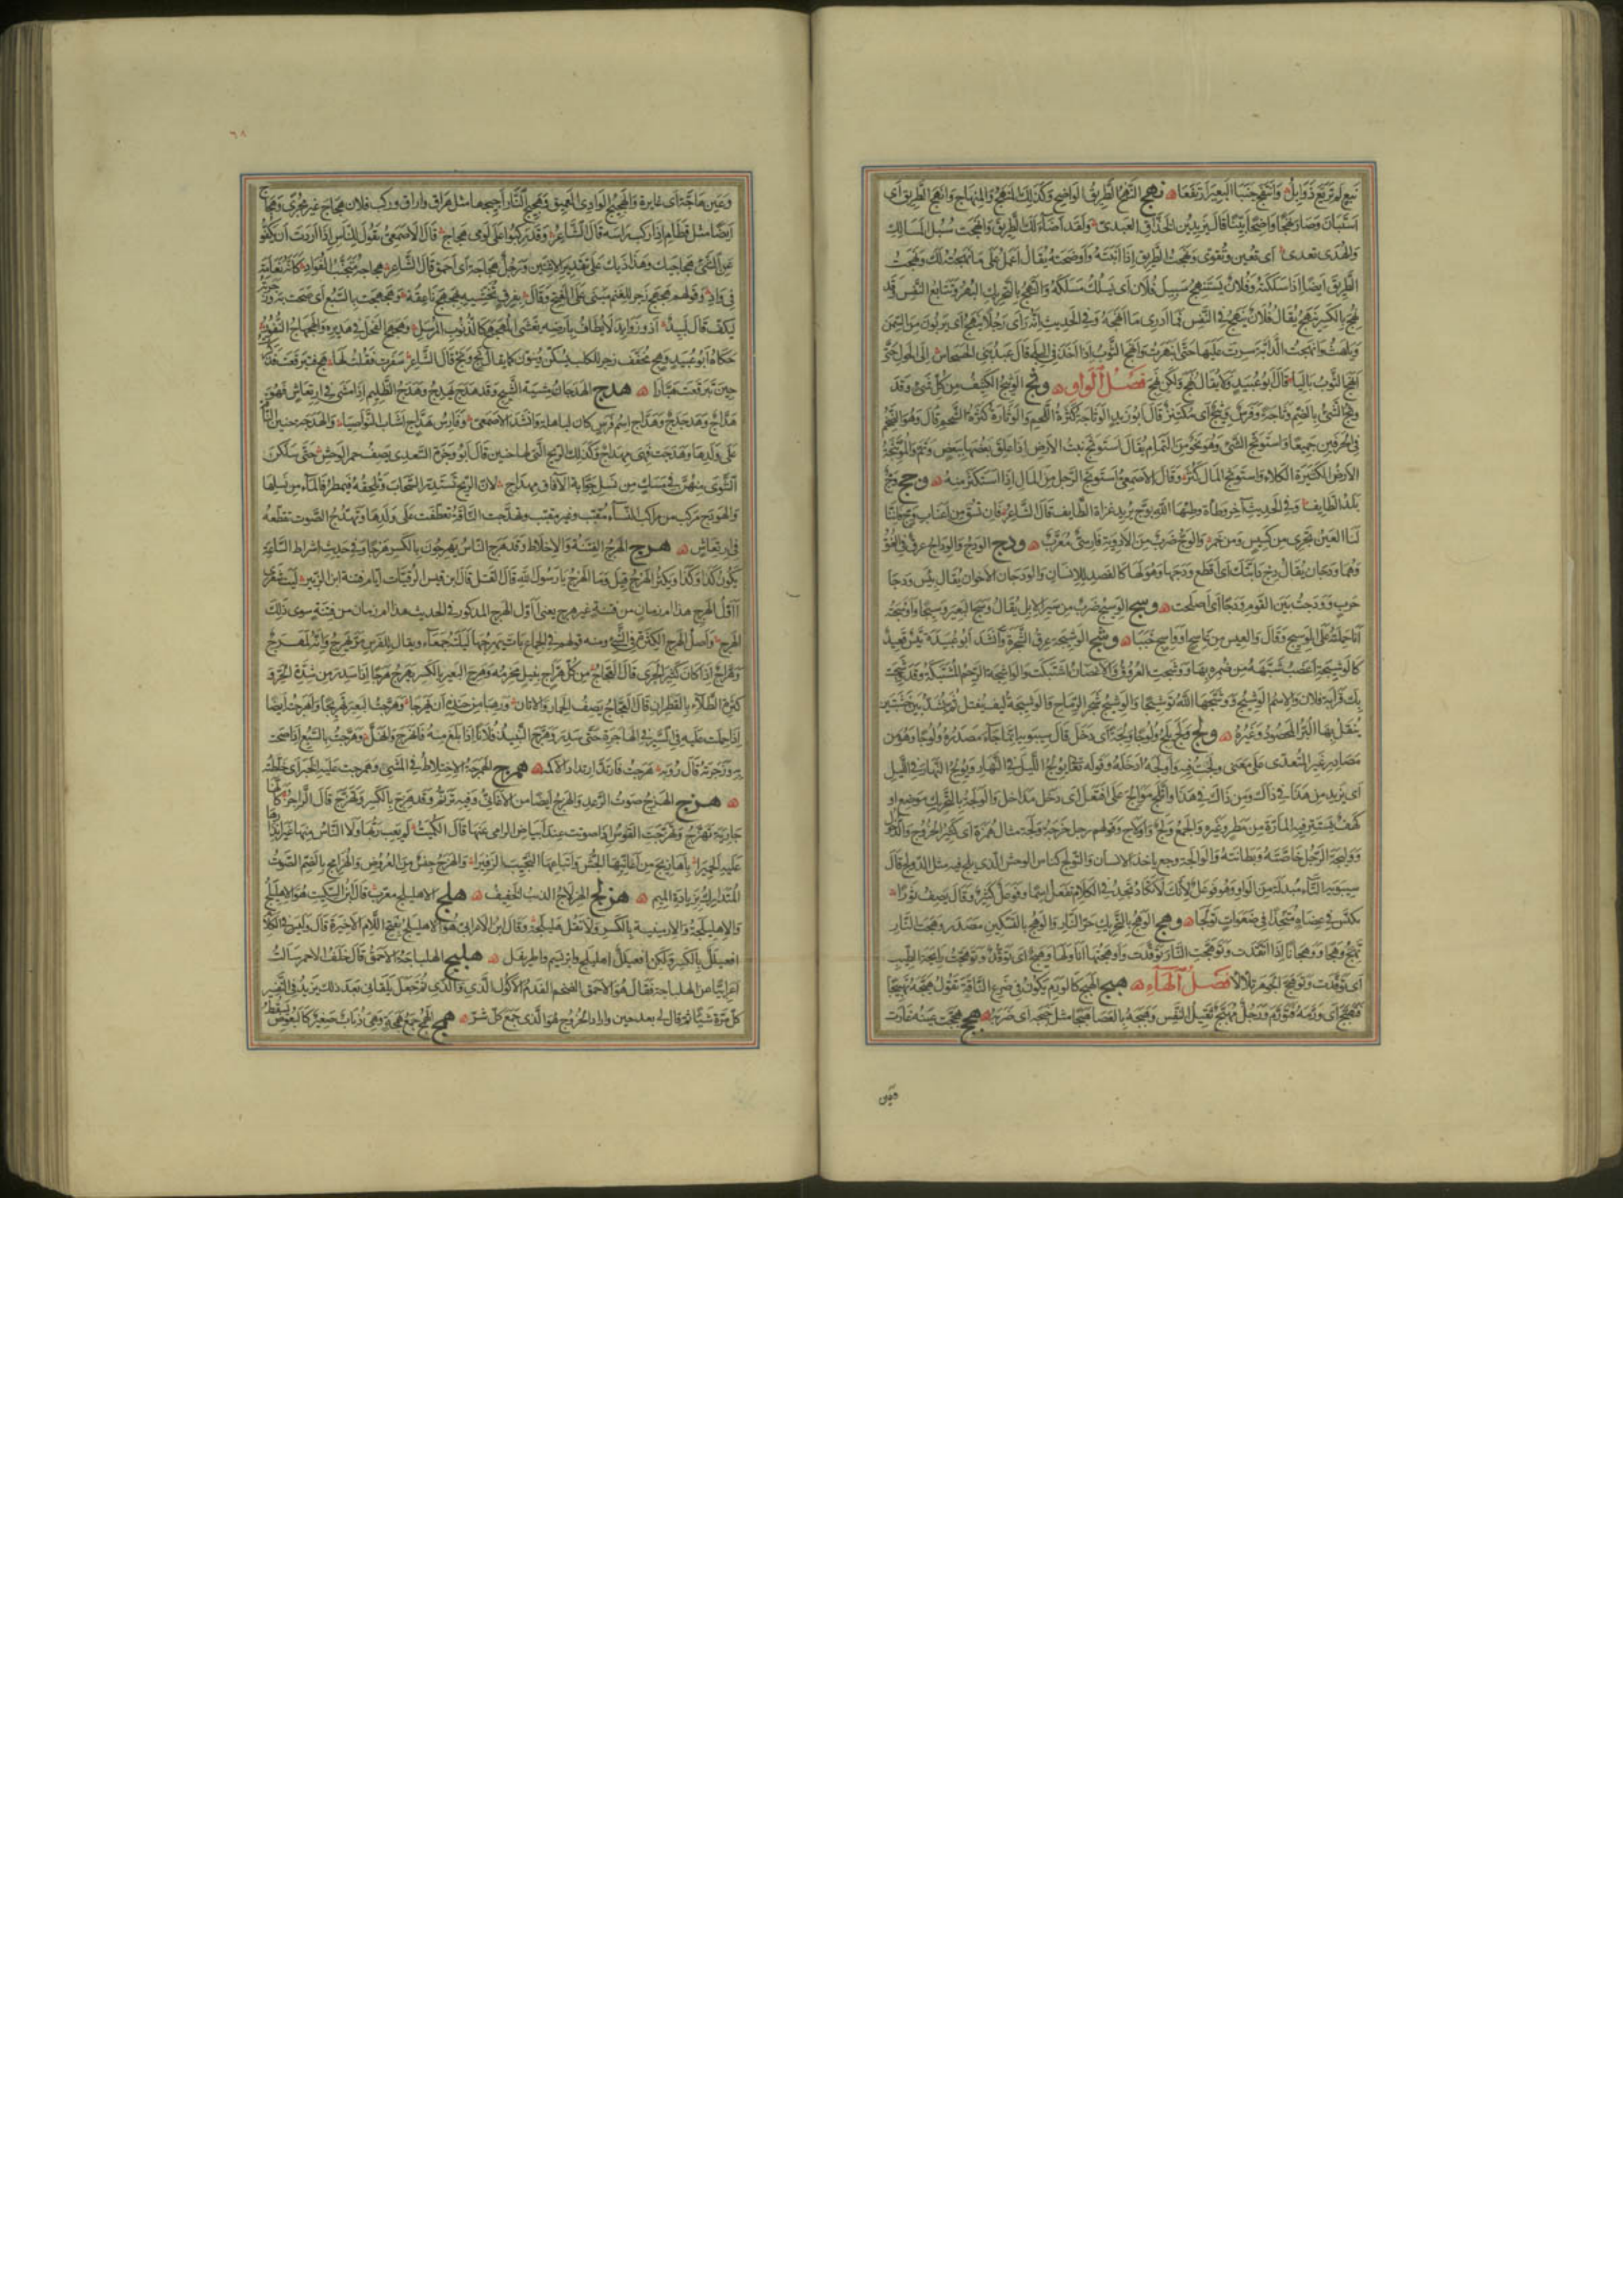 نهج النهج الطريق الواضح وكذلك المنهج والمنهاج وانهج الطريق اى
استبان وصار نهجا واضحا بينا قال يزيد بن الخذاق العبدى ولقد اضاء لك الطريق وانهجت سبل المسالك
والهدى تعدى اى تعين وتقوى ونهجت الطريق اذا ابنته واوضحته يقال اعمل على ما نهجته لك ونهجت
الطريق ايضا اذا سلكته وفلان يستنهج سبيل فلان اى يسلك مسلكه والنهج بالتحريك البهر وتتابع النفس وقد
نهج بالكسر ينهج يقال فلان ينهج فى النفس فما ادرى ما انهجه وفى الحديث انه راى رجلا ينهج اى يربو من السمن
ويلهث وانهجت الدابة سرت عليها حتى انبهرت وانهج الثوب اذا اخذ فى البلى قال عبد بنى الحسحاس الى الحول حتى
انهج الثوب باليا قال ابو عبيد ولا يقال نهج ولكن نهج فصل الواو وثج الوثيج الكثيف من كل شىء وقد
وثج الشىء بالضم وثاجة وفرس وثيج اى مكتنز قال ابو زيد الوثاجة كثرة اللحم والوثارة كثرة الشحم قال وهو الضخم
فى الحرفين جميعا واستوثج الشىء وهو نحو من التمام يقال استوثج نبت الارض اذا علق بعضها ببعض وتم والموتثجة
الارض الكثيرة الكلاء واستوثج المال كثر وقال الاصمعى استوثج الرجل من المال اذا استكثر منه وجج وج
بلد الطايف وفى الحديث آخر وطأة وطئها الله بوج يريد غزاة الطايف قال الشاعر فان تسق من اعناب وج فاننا
لنا العين تجرى من كسيس ومن خمر والوج ضرب من الادوية فارسى معرب ودج الودج والوداج عرق فى العنق
وهما ودجان يقال دج دابتك اى اقطع ودجها وهو لها كالفصد للانسان والودجان الاخوان يقال بئس ودجا
حرب وودجت بين القوم ودجا اى اصلحت وسج الوسيج ضرب من سير الابل يقال وسج البعير وسيجا واوسجته
انا حملته على الوسيج وقال والعيس من عاسج او واسج خببا وشج الوشيجة عرق الشجرة وانشد ابو عبيدة تيس قعيد
كالوشيجة اعضب شبهه من ضمره بها ووشجت العروق والاغصان اشتبكت والواشجة الرحم المشتبكة وقد وشجت
بك قرابة فلان والاسم الوشيج ووشجها الله توشيجا والوشيج شجر الرماح والوشيجة ليف يفتل ثم يشد بين خشبتين
ينقل بها البر المحصود وغيره ولج ولج يلج ولوجا ولجة اى دخل قال سيبويه انما جاء مصدره ولوجا وهو من
مصادر غير المتعدى على معنى ولجت فيه واولجه ادخله وقوله تعالى يولج الليل فى النهار ويولج النهار فى الليل
اى يزيد من هذا فى ذاك ومن ذاك فى هذا واتلج موالج على افتعل اى دخل مداخل والولجة بالتحريك موضع او
كهف تستتر فيه المارة من مطر وغيره والجمع ولج واولاج وقولهم رجل خرجة ولجة مثال همزة اى كثير الخروج والدخول
ووليجة الرجل خاصته وبطانته والوالجة وجع ياخذ الانسان والتولج كناس الوحش الذى يلج فيه مثل الدولج قال
سيبويه التاء مبدلة من الواو وهو فوعل لانك لا تكاد تجد فى الكلام تفعل اسما وفوعل كثير وقال يصف ثورا
متخذا فى ضعوات تولجا وهج الوهج بالتحريك حر النار والوهج بالتسكين مصدر وهجت النار
تهج وهجا ووهجانا اذا اتقدت وتوهجت النار توقدت واوهجتها انا ولها وهيج اى توقد وتوهجت رايحة الطيب
اى توقدت وتوهج الجوهر تلألأ فصل الهاء هبج الهبج كالورم يكون فى ضرع الناقة تقول هبجه تهبيجا
فتهبج اى ورمه فتورم ورجل مهبج ثقيل النفس وهبجه بالعصا هبجا مثل حبجه اى ضربه هجج هجت عينه غارت
وعين
٦٨
وعين هاجة اى غايرة والهجيج الوادى العميق وهجيج النار اجيجها مثل هراق واراق وركب فلان هجاج غير مجرى وهجاج
ايضا مثل قطام اذا ركب راسه قال الشاعر وقد ركبوا على لومى هجاج قال الاصمعى تقول للناس اذا اردت ان يكفوا
عن الشىء هجاجيك وهذاذيك على تقدير الاثنين ورجل هجاجة اى احمق قال الشاعر هجاجة منتخب الفواد كانه نعامة
فى واد وقولهم هجهج زجر للغنم مبنى على الفتح وهجهجت بالسبع اى صحت به وزجرته
ليكف قال لبيد او ذو زوايد لا يطاف بارضه يغشى المهجهج كالذنوب المرسل وهجهج الفحل فى هديره والهجهاج النفور
حكاه ابو عبيد وهج مخفف زجر للكلب يسكن وينون كما يقال بخ وبخ قال الشاعر سفرت فقلت لها هج فتبرقعت فذكرت
حين تبرقعت هبارا هدج الهدجان مشية الشيخ وقد هدج يهدج وهدج الظليم اذا مشى فى ارتعاش فهو
هداج وهدجدج وهداج اسم فرس كان لباهلة وانشد الاصمعى وفارس هداج اشاب النواصيا والهدجة حنين الناقة
على ولدها وهدجت فهى مهداج وكذلك الريح التى لها حنين قال ابو وجزة السعدى يصف حمر الوحش حتى سلكن
الشوى منهن فى مسك من نسل جوابة الآفاق مهداج لان الريح تستدر السحاب وتلقحه فيمطر فالماء من نسلها
والهودج مركب من مراكب النساء مقبب وغير مقبب وتهدجت الناقة تعطفت على ولدها وتهدج الصوت تقطعه
فى ارتعاش هرج الهرج الفتنة والاختلاط وقد هرج الناس يهرجون بالكسر هرجا وفى حديث اشراط الساعة
يكون كذا وكذا ويكثر الهرج قيل وما الهرج يا رسول الله قال القتل قال ابن قيس الرقيات ايام فتنة ابن الزبير ليت شعرى
أاول الهرج هذا ام زمان من فتنة غير هرج يعنى أاول الهرج المذكور فى الحديث هذا ام زمان من فتنة سوى ذلك
الهرج واصل الهرج الكثرة فى الشىء ومنه قولهم فى الجماع بات يهرجها ليلته جمعاء ويقال للفرس مر يهرج وانه لمهرج
وهراج اذا كان كثير الجرى قال العجاج من كل هراج نبيل محزمه وهرج البعير بالكسر يهرج هرجا اذا سدر من شدة الحر و
كثرة الطلاء بالقطران قال العجاج يصف الحمار والاتان ورهبا من حنذه ان يهرجا وهرجت البعير تهريجا واهرجت ايضا
اذا حملت عليه فى السير فى الهاجرة حتى سدر وهرج النبيذ فلانا اذا بلغ منه فانهرج وانهك وهرجت بالسبع اذا صحت
به وزجرته قال روبة هرجت فارتد ارتداد الاكمه همرج الهمرجة الاختلاط فى المشى وهمرجت عليه الخبر اى خلطته
هزج الهزج صوت الرعد والهزج ايضا من الاغانى وفيه ترنم وقد هزج بالكسر وتهزج قال الراجز كانها
جارية تهزج وتهزجت القوس اذا صوتت عند انباض الرامى عنها قال الكميت لم يعب ربها ولا الناس منها غير انذارها
عليه الحميرا باهازيج من اغانيها الجش واتباعها النحيب الزفيرا والهزج جنس من العروض والهزامج بالضم الصوت
المتدارك بزيادة الميم هزلج الهزلاج الذيب الخفيف هلج الاهليلج معرب قال ابن السكيت هو الاهليلج
والاهليلجة والارمينية بالكسر ولا تقل هليلجة وقال ابن الاعرابى هو الاهليلج بفتح اللام الاخيرة قال وليس فى الكلام
افعيلل بالكسر ولكن افعيلل اهليلج وابريسم واطريفل هلبج الهلباجة الاحمق قال خلف الاحمر سالت
اعرابيا عن الهلباجة فقال هو الاحمق الضخم الفدم الاكول الذى والذى ثم جعل يلقانى بعد ذلك يزيد فى التفسير
كل مرة شيئا ثم قال لى بعد حين واراد الخروج هو الذى جمع كل شر همج الهمج جمع همجة وهى ذباب صغير كالبعوض يسقط